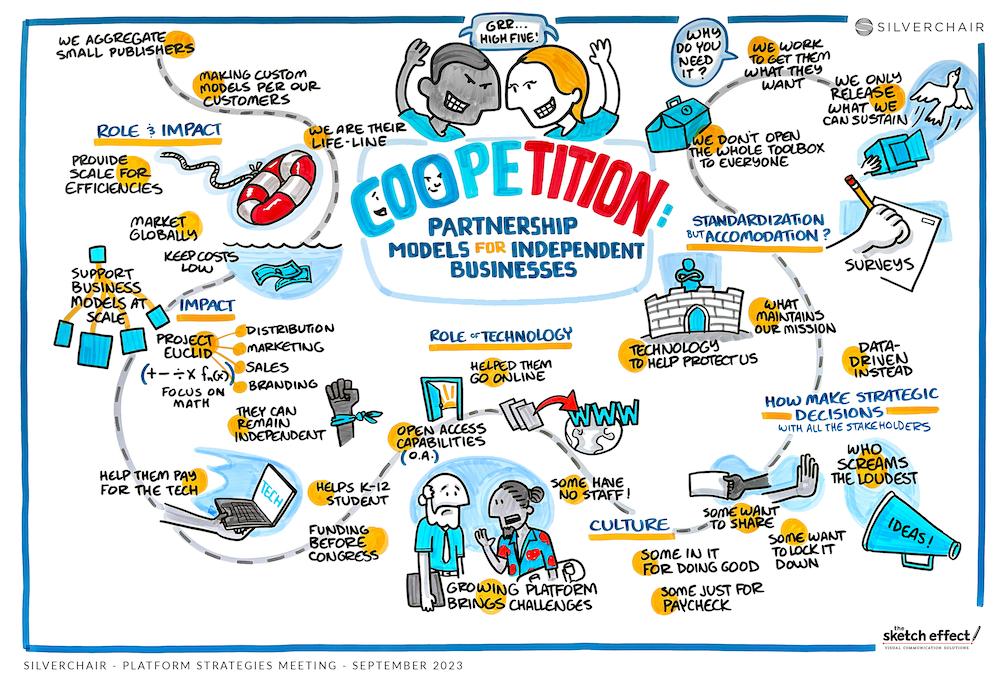 SILVERCHAIR
GRR...
HIGH FIVE!
COOPETITION:
PARTNERSHIP
MODELS FOR INDEPENDENT
BUSINESSES
WE AGGREGATE
SMALL PUBLISHERS
MAKING CUSTOM
MODELS PER OUR
CUSTOMERS
ROLE & IMPACT
WE ARE THEIR
LIFE-LINE
PROVIDE
SCALE FOR
EFFICIENCIES
MARKET
GLOBALLY
KEEP COSTS
LOW
SUPPORT
BUSINESS
MODELS AT
SCALE
IMPACT
PROJECT
EUCLID
(+ − ÷ x fn(x))
FOCUS ON
MATH
DISTRIBUTION
MARKETING
SALES
BRANDING
THEY CAN
REMAIN
INDEPENDENT
HELP THEM PAY
FOR THE TECH
TECH
HELPS K-12
STUDENT
FUNDING
BEFORE
CONGRESS
ROLE OF TECHNOLOGY
HELPED THEM
GO ONLINE
WWW
OPEN ACCESS
CAPABILITIES
(O.A.)
SOME HAVE
NO STAFF!
GROWING PLATFORM
BRINGS CHALLENGES
CULTURE
SOME WANT
TO SHARE
SOME WANT
TO LOCK IT
DOWN
SOME IN IT
FOR DOING GOOD
SOME JUST FOR
PAYCHECK
WHY
DO YOU
NEED
IT?
WE WORK
TO GET THEM
WHAT THEY
WANT
WE ONLY
RELEASE
WHAT WE
CAN SUSTAIN
WE DON'T OPEN
THE WHOLE TOOLBOX
TO EVERYONE
STANDARDIZATION
BUT ACCOMODATION?
SURVEYS
WHAT
MAINTAINS
OUR MISSION
TECHNOLOGY
TO HELP PROTECT US
DATA-
DRIVEN
INSTEAD
HOW MAKE STRATEGIC
DECISIONS
WITH ALL THE STAKEHOLDERS
WHO
SCREAMS
THE LOUDEST
IDEAS!
the
sketch effect!
VISUAL COMMUNICATION SOLUTIONS
SILVERCHAIR - PLATFORM STRATEGIES MEETING - SEPTEMBER 2023